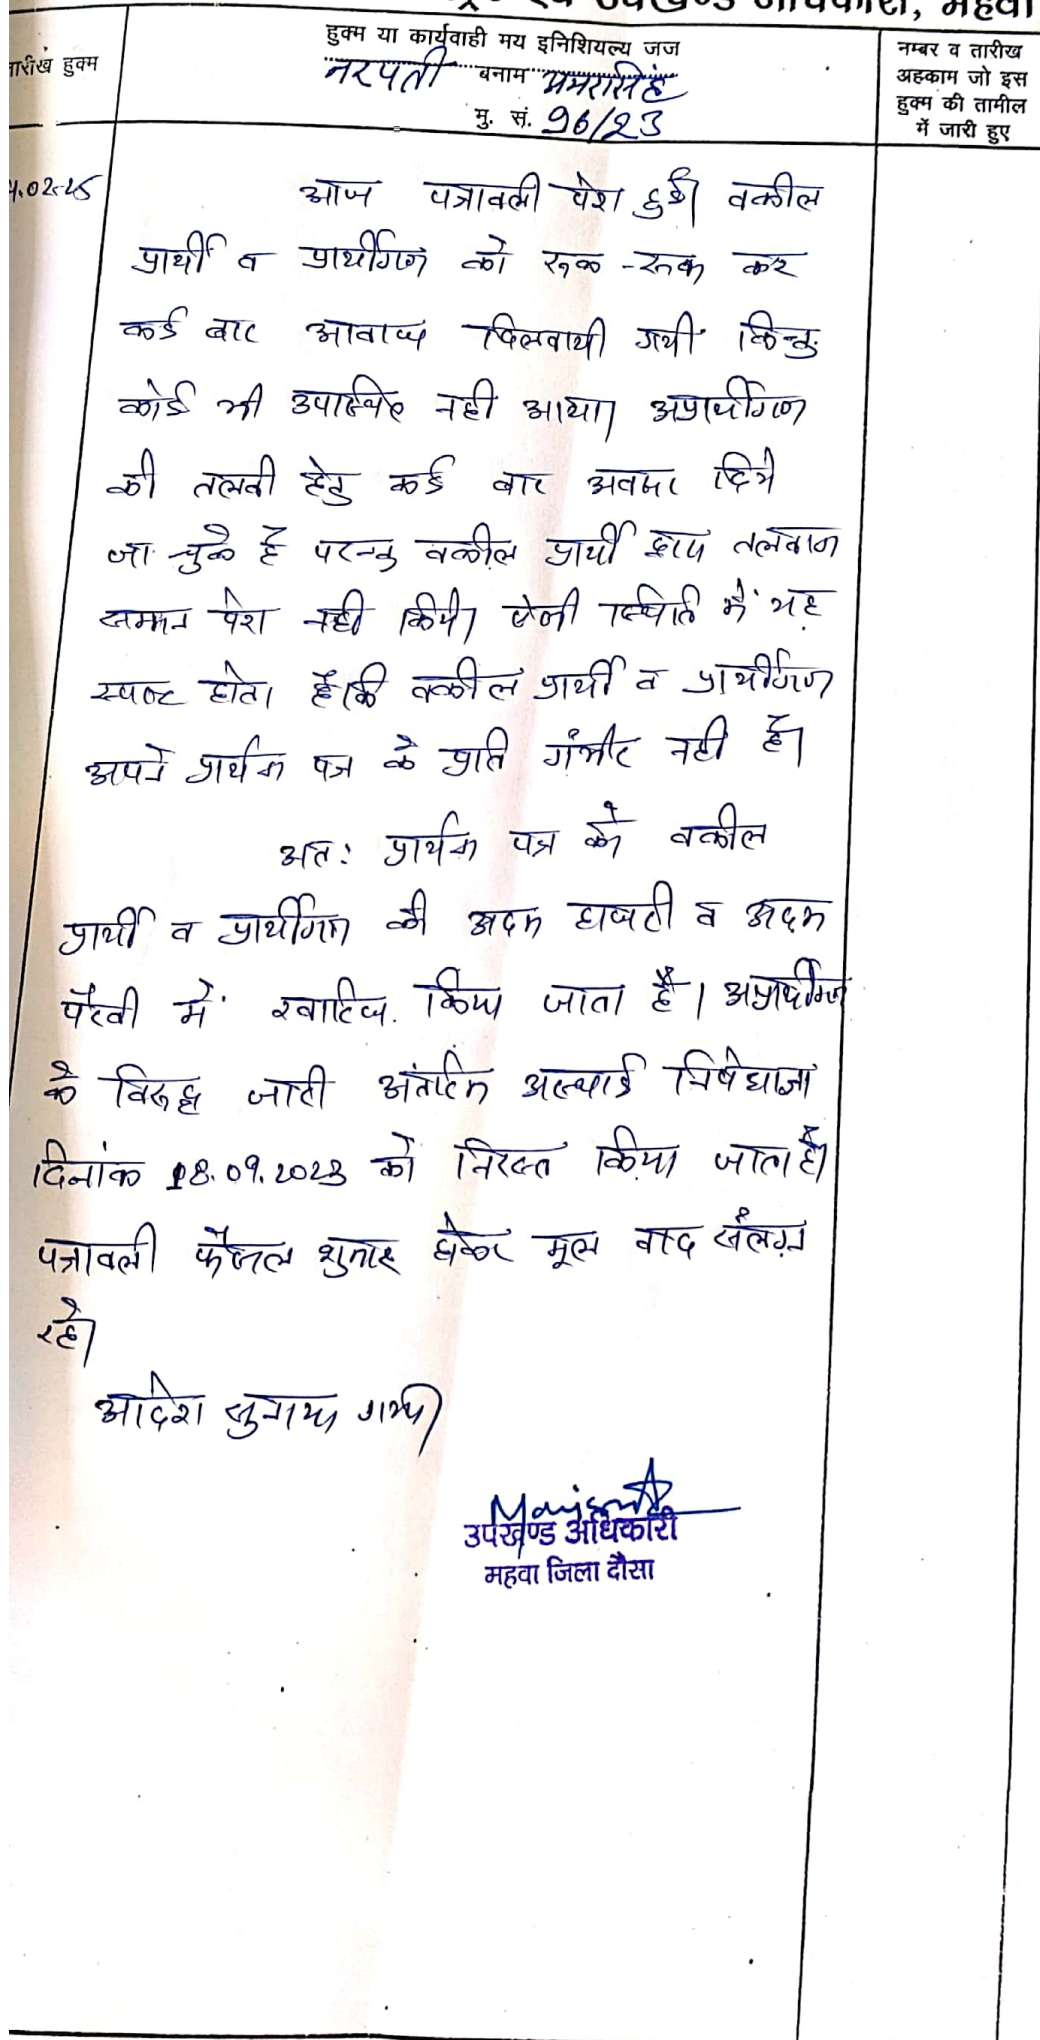 उपखण्ड अधिकारी, महवा
तारीख हुक्म
हुक्म या कार्यवाही मय इनिशियल्य जज
नरपती बनाम अमरसिंह
मु. सं. 96/23
नम्बर व तारीख
अहकाम जो इस
हुक्म की तामील
में जारी हुए
.02.25
आज पत्रावली पेश हुई। वकील
प्रार्थी व प्रार्थीगण को रूक-रूक कर
कई बार आवाज दिलवायी गयी किन्तु
कोई भी उपस्थित नही आया। अप्रार्थीगण
की तलबी हेतु कई बार अवसर दिये
जा चुके है परन्तु वकील प्रार्थी द्वारा तलबाना
सम्मन पेश नही किये। ऐसी स्थिति में यह
स्पष्ट होता है कि वकील प्रार्थी व प्रार्थीगण
अपने प्रार्थना पत्र के प्रति गंभीर नही है।
अत: प्रार्थना पत्र को वकील
प्रार्थी व प्रार्थीगण की अदम हाजरी व अदम
पैरवी में खारिज किया जाता है। अप्रार्थीगण
के विरूद्ध जारी अंतरिम अस्थाई निषेधाज्ञा
दिनांक 18.09.2023 को निरस्त किया जाता है।
पत्रावली फैसल शुमार होकर मूल वाद संलग्न
रहे।
आदेश सुनाया गया।
उपखण्ड अधिकारी
महवा जिला दौसा